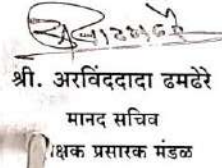 श्री. अरविंददादा ढमढेरे
मानद सचिव
क्षक प्रसारक मंडळ